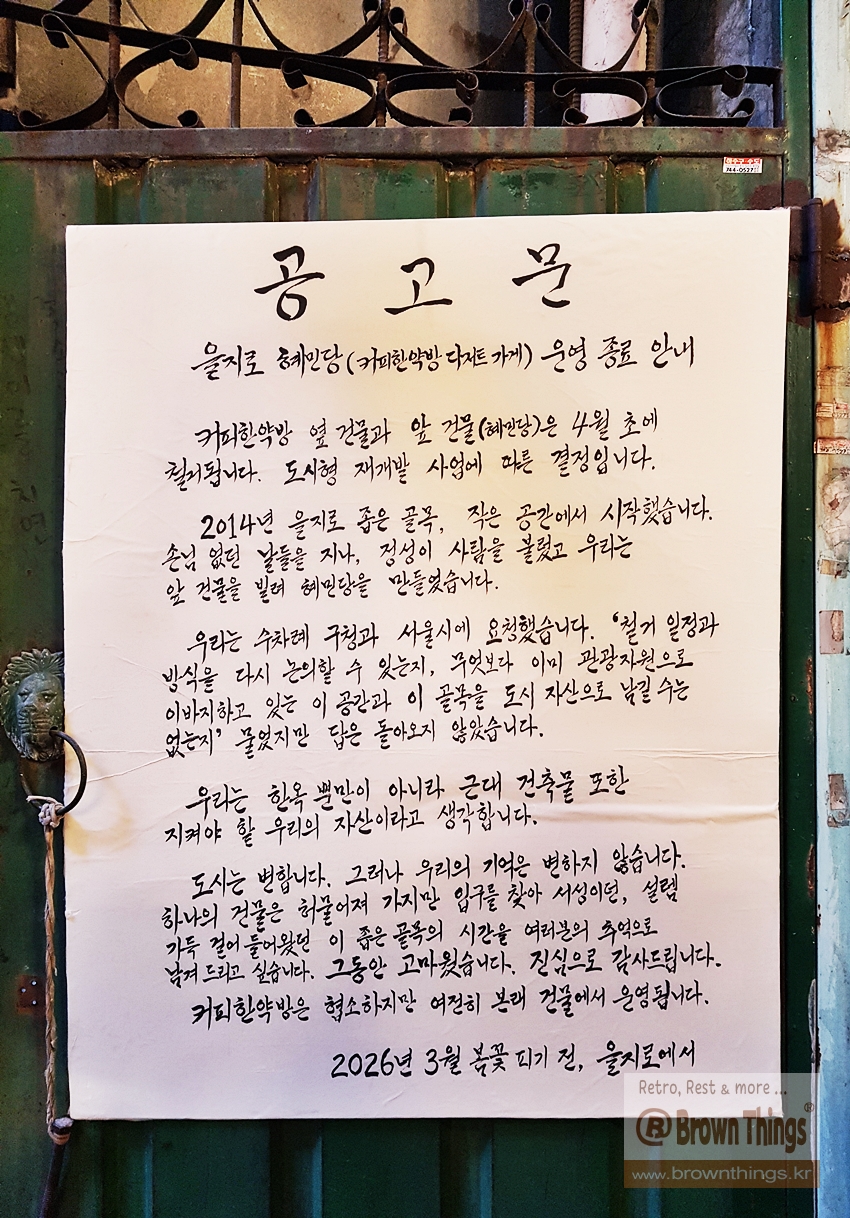 공고문
을지로 혜민당(커피한약방 디저트 가게) 운영 종료 안내
커피한약방 옆 건물과 앞 건물(혜민당)은 4월 초에
철거됩니다. 도시형 재개발 사업에 따른 결정입니다.
2014년 을지로 좁은 골목, 작은 공간에서 시작했습니다.
손님 없던 날들을 지나, 정성이 사람을 불렀고 우리는
앞 건물을 빌려 혜민당을 만들었습니다.
우리는 수차례 구청과 서울시에 요청했습니다. ‘철거 일정과
방식을 다시 논의할 수 있는지, 무엇보다 이미 관광자원으로
이바지하고 있는 이 공간과 이 골목을 도시 자산으로 남길 수는
없는지’ 물었지만 답은 돌아오지 않았습니다.
우리는 한옥 뿐만이 아니라 근대 건축물 또한
지켜야 할 우리의 자산이라고 생각합니다.
도시는 변합니다. 그러나 우리의 기억은 변하지 않습니다.
하나의 건물은 허물어져 가지만 입구를 찾아 서성이던, 설렘
가득 걸어 들어왔던 이 좁은 골목의 시간을 여러분의 추억으로
남겨 드리고 싶습니다. 그동안 고마웠습니다. 진심으로 감사드립니다.
커피한약방은 협소하지만 여전히 본래 건물에서 운영됩니다.
2026년 3월 봄꽃 피기 전, 을지로에서
Retro, Rest & more ...
® Brown Things®
www.brownthings.kr